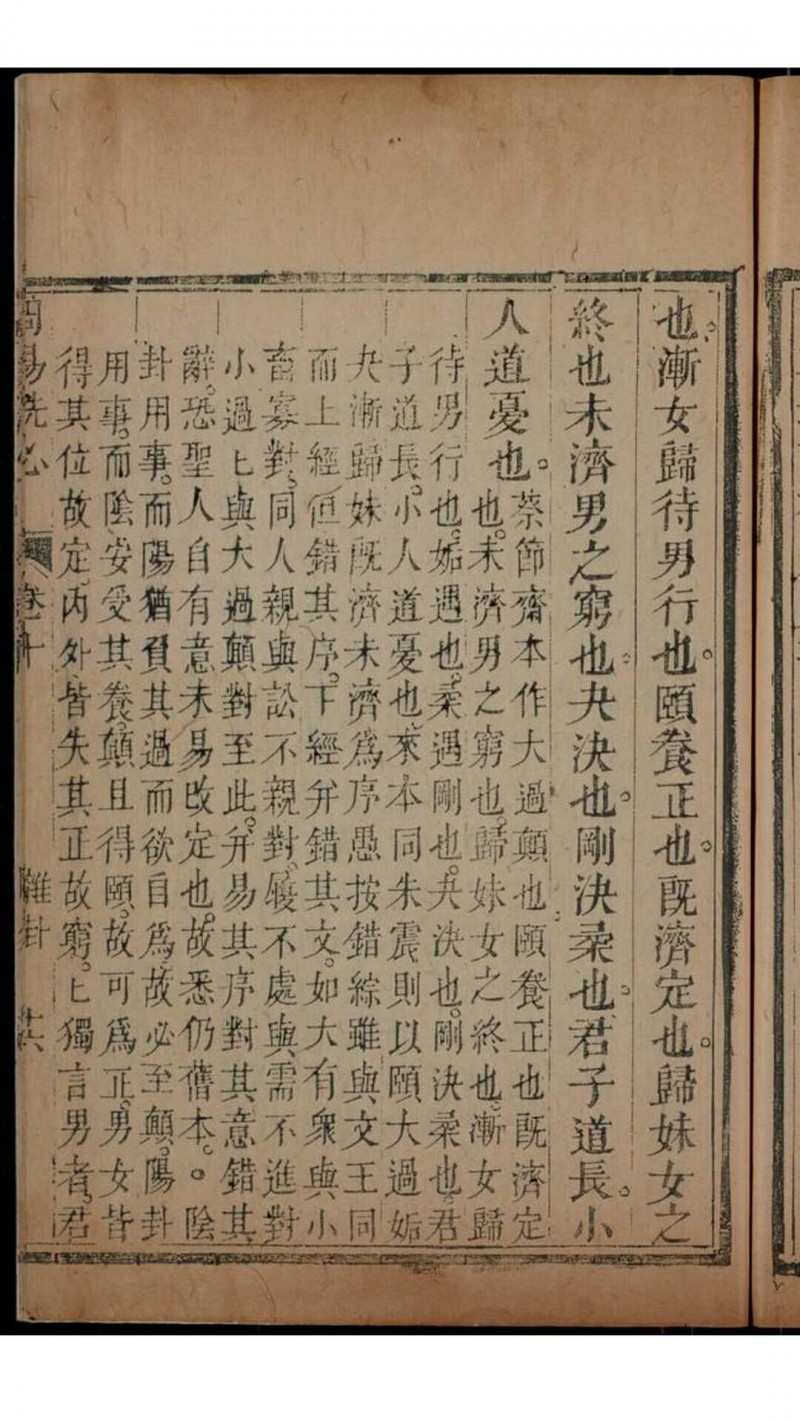 也漸女歸待男行也。頤養正也。既濟定也。歸妹女之
終也未濟男之窮也。夬決也。剛決柔也。君子道長。小
人道憂也。
蔡節齋本作大過顛也頤養正也既濟定
也。未濟男之窮也。歸妹女之終也漸女歸
待男行也。姤遇也。柔遇剛也。夬決也。剛決柔也。君
子道長。小人道憂也。來本同朱震則以頤大過姤
夬漸歸妹既濟未濟爲序愚按錯綜雖與文王同
而上經但錯其序。下經弁錯其文。如大有衆與小
畜寡對。同人親與訟不親對。履不處與需不進對
小過匕與大過顛對至此。弁易其序對其意錯其
辭。恐聖人自有意未易改定也。故悉仍舊本。陰
卦用事。而陽猶負其過而欲自爲故必至顛。陽卦
用事。而陰安受其養。顛且得頤。故可爲正。男女皆
得其位故定。內外皆失其正故窮。匕獨言男者。君
周易洗心 卷十 雜卦 十六